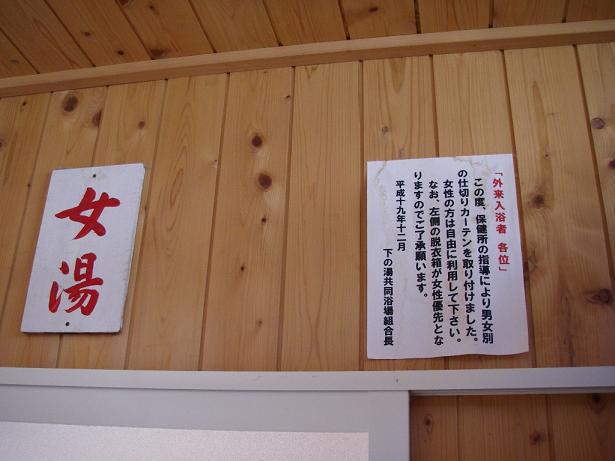 「外来入浴者 各位」
この度、保健所の指導により男女別
の仕切りカーテンを取り付けました。
女性の方は自由に利用して下さい。
なお、左側の脱衣箱が女性優先とな
りますのでご了承願います。
平成十九年十二月
下の湯共同浴場組合長
女湯